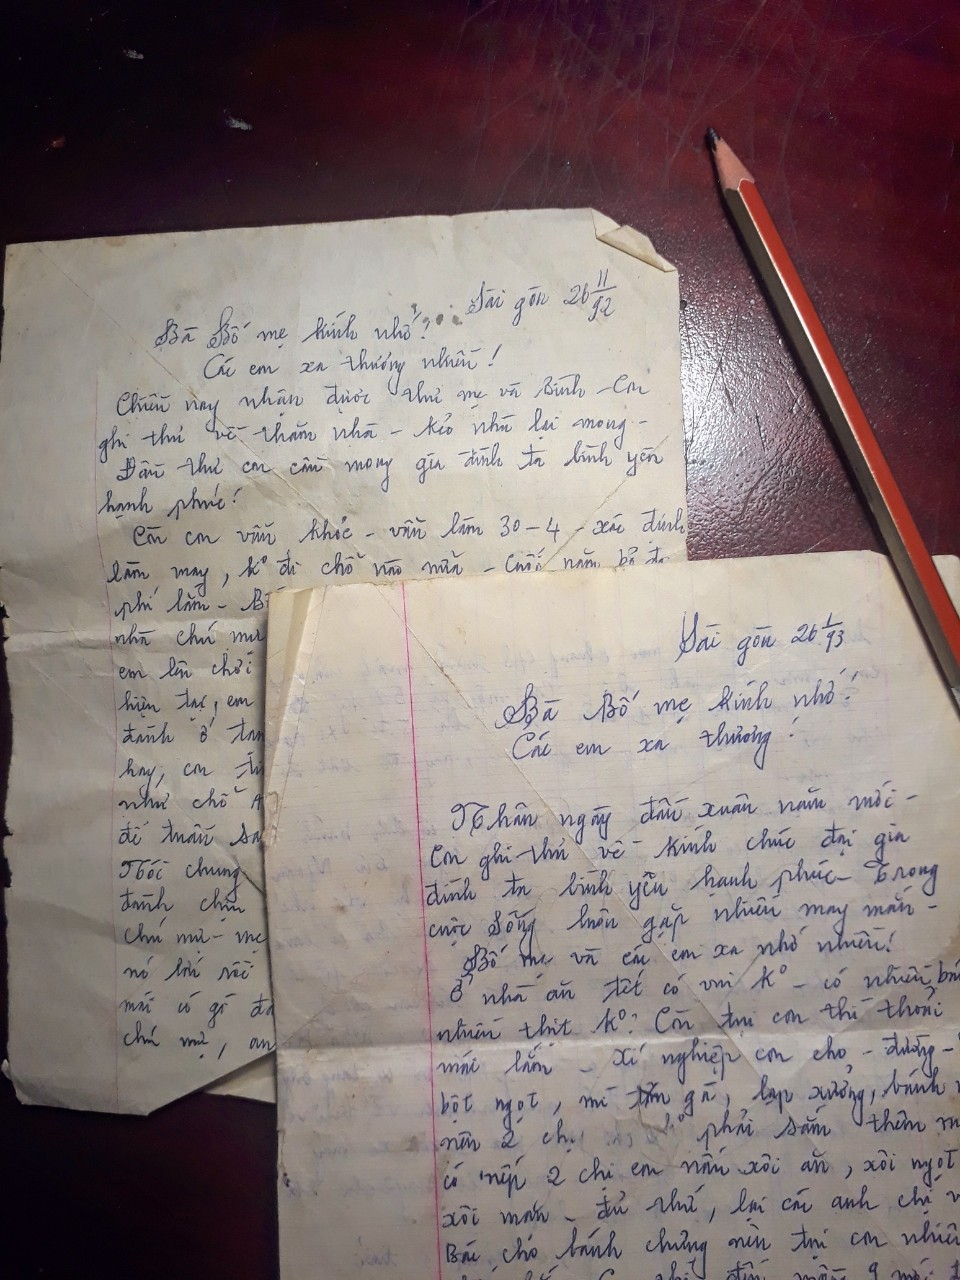 Sài gòn 26 11/92
Bà Bố mẹ kính nhớ!
Các em xa thương nhiều!
Chiều nay nhận được thư mẹ và Bình - Con
ghi thư về thăm nhà - kẻo nhà lại mong -
Đầu thư con cầu mong gia đình ta bình yên
hạnh phúc!
Còn con vẫn khỏe - vẫn làm 30-4 - xác định
làm may, kº đi chỗ nào nữa - Cuối năm bỏ
phí lắm -
nhà chú mợ
em lên chơi
hiện tại, em
đành ở
hay, con
như chỗ
để tuần sau
Tối chung
đành chịu
chú mợ - mẹ
nó lớn rồi
mới có gì
chú mợ, an
Sài gòn 26 1/93
Bà Bố mẹ kính nhớ!
Các em xa thương!
Nhân ngày đầu xuân năm mới -
Con ghi thư về kính chúc đại gia
đình ta bình yên hạnh phúc - Trong
cuộc sống luôn gặp nhiều may mắn -
Bố mẹ và các em xa nhớ nhiều!
Ở nhà ăn tết có vui kº - có nhiều
nhiều thịt kº? Còn tụi con thì thoải
mái lắm - xí nghiệp con cho - đường -
bột ngọt, mì gà, lạp xưởng, bánh
nên 2 chị kº phải sắm thêm
có nếp 2 chị em nấu xôi ăn, xôi ngọt
xôi mặn - đủ thứ, lại các anh chị
Bác cho bánh chưng nên tụi con nhiều